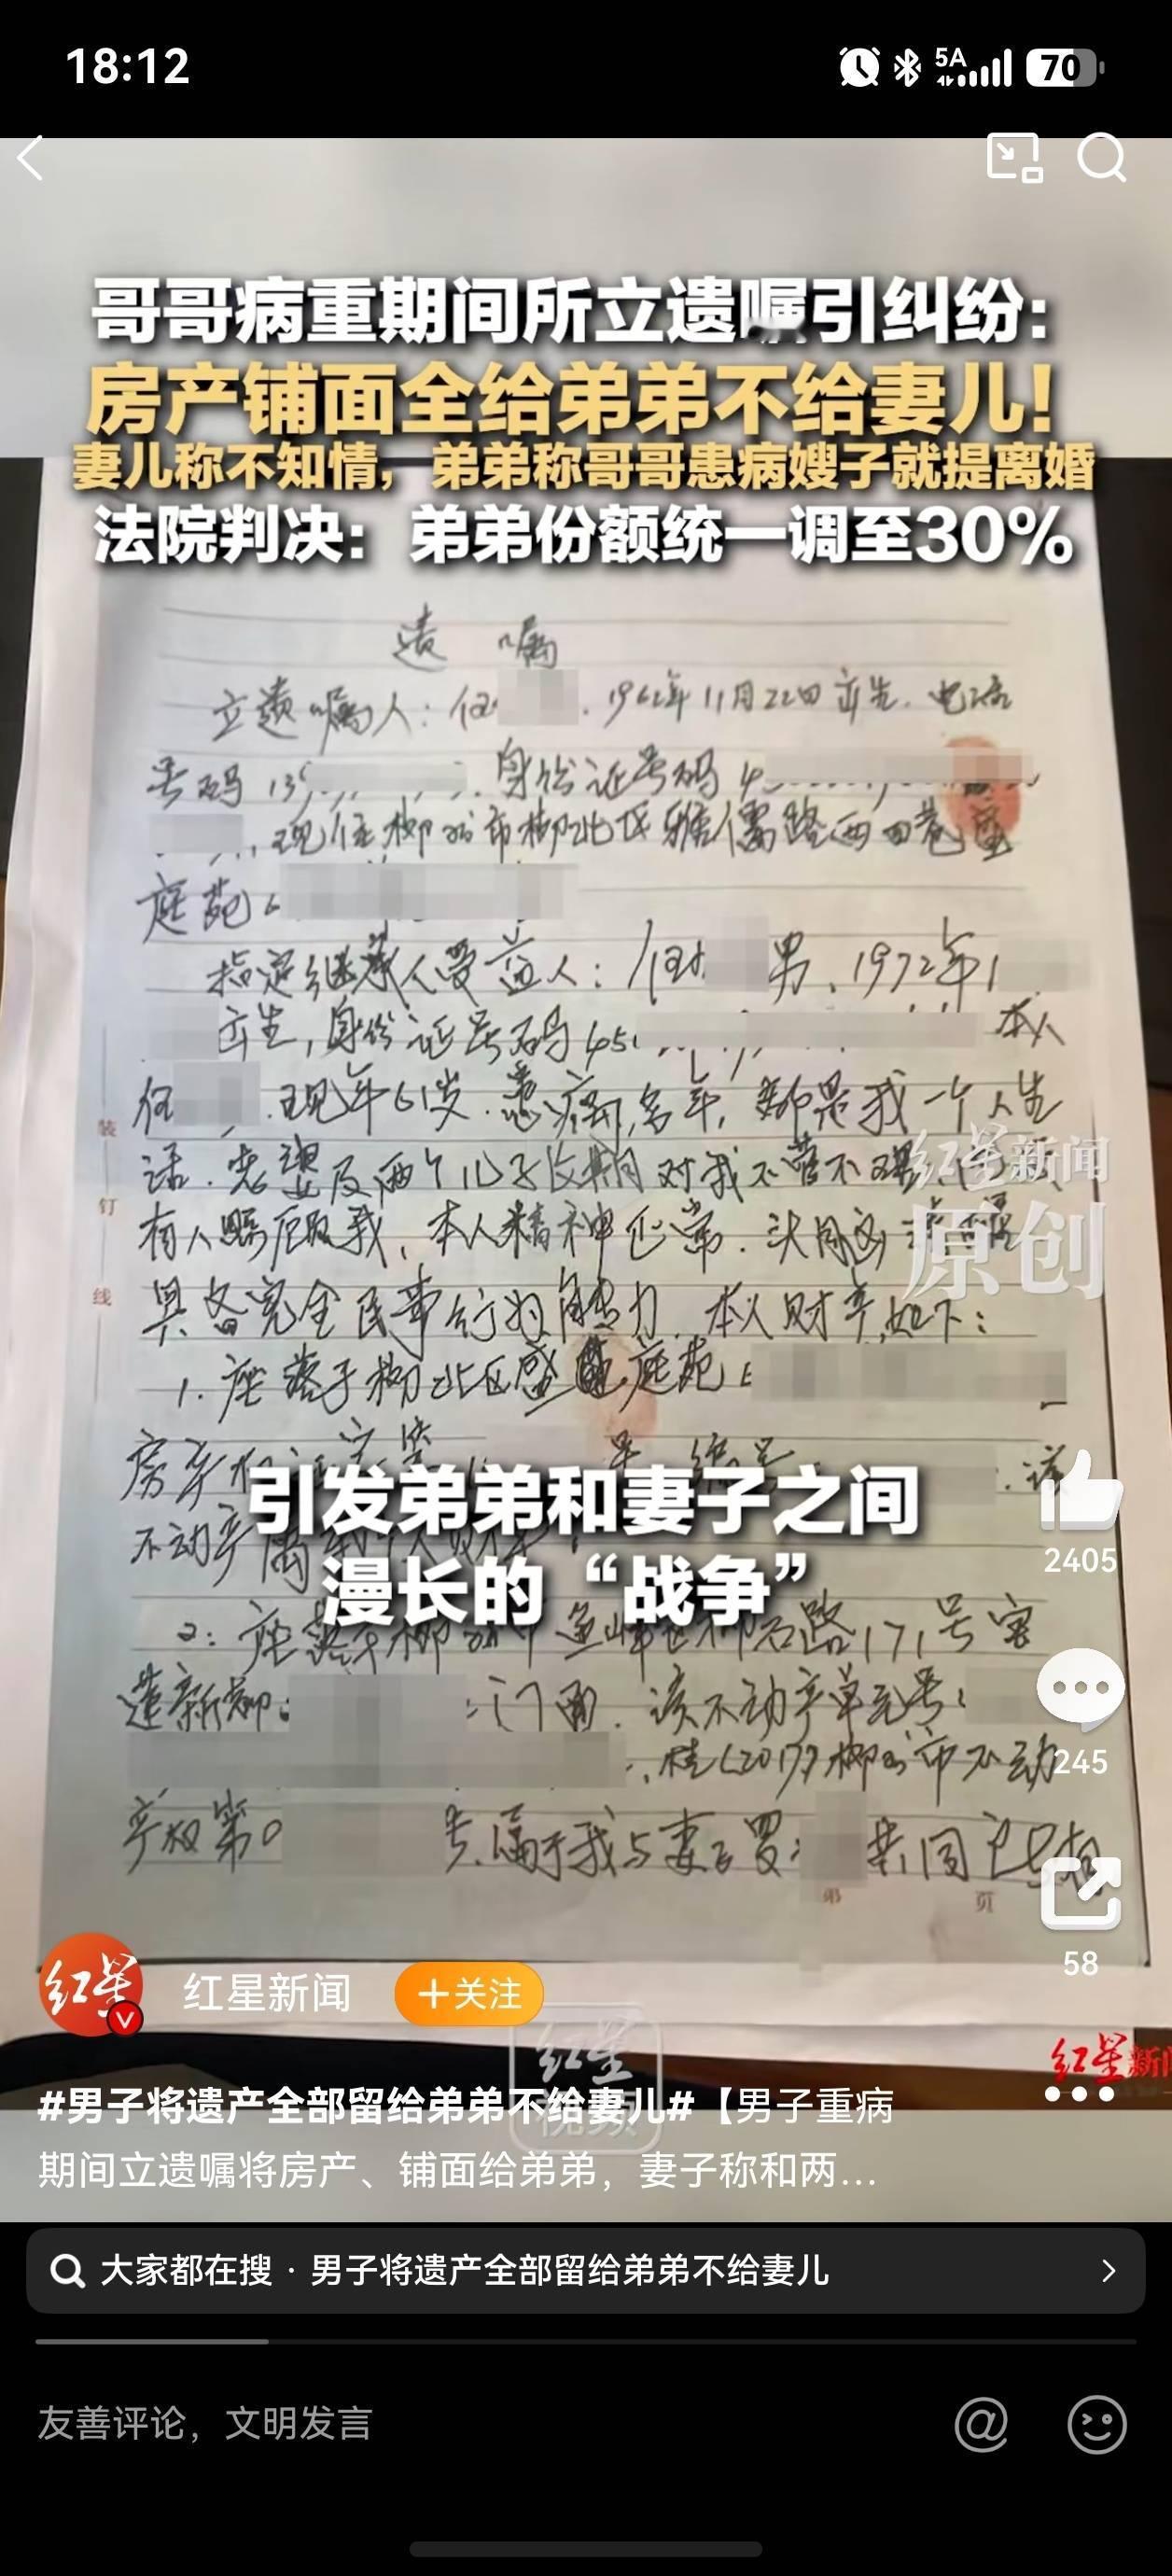 18:12
5A
70
哥哥病重期间所立遗嘱引纠纷：
房产铺面全给弟弟不给妻儿！
妻儿称不知情，弟弟称哥哥患病嫂子就提离婚
法院判决：弟弟份额统一调至30%
遗 嘱
立遗嘱人：任 1962年11月22日出生.电话
号码 13 身份证号码 4
现住柳州市柳北区雅儒路西四巷盛
庭苑
指定继承人受益人：任 男、1972年1
出生，身份证号码45 本人
任 现年61岁.患病多年，都是我一个人生
活.老婆及两个儿子长期对我不管不理
有人照顾我，本人精神正常.头脑
具备完全民事行为能力.本人财产如下：
1.座落于柳北区盛 庭苑
房产 号 编号 该
不动产属 人
引发弟弟和妻子之间
漫长的“战争”
2：座落于柳州市鱼峰区柳石路171号
门面.该不动产单元号：
桂(2017)柳州市不动
产权第0
号.属于我与妻子罗 共同占有
装
钉
线
第 页
红星新闻
原创
2405
245
58
红星新闻
+关注
红星
视频
红星新
#男子将遗产全部留给弟弟不给妻儿#【男子重病
期间立遗嘱将房产、铺面给弟弟，妻子称和两...
大家都在搜 · 男子将遗产全部留给弟弟不给妻儿
友善评论，文明发言